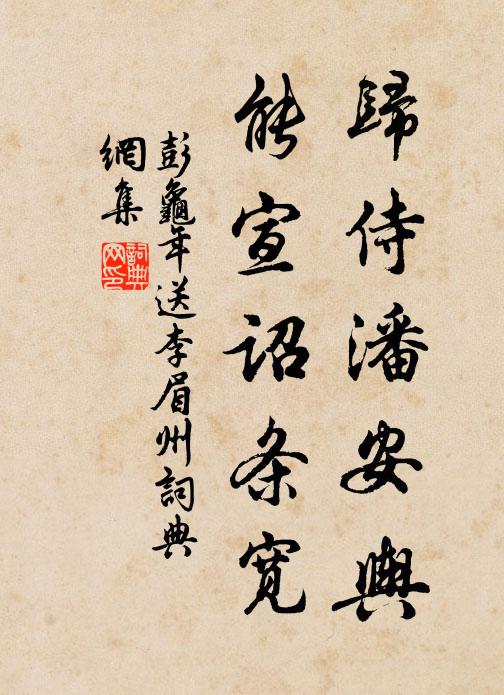 歸侍潘安輿
能宣詔条宽
彭龜年送李眉州詞典
網集
詞典
网印